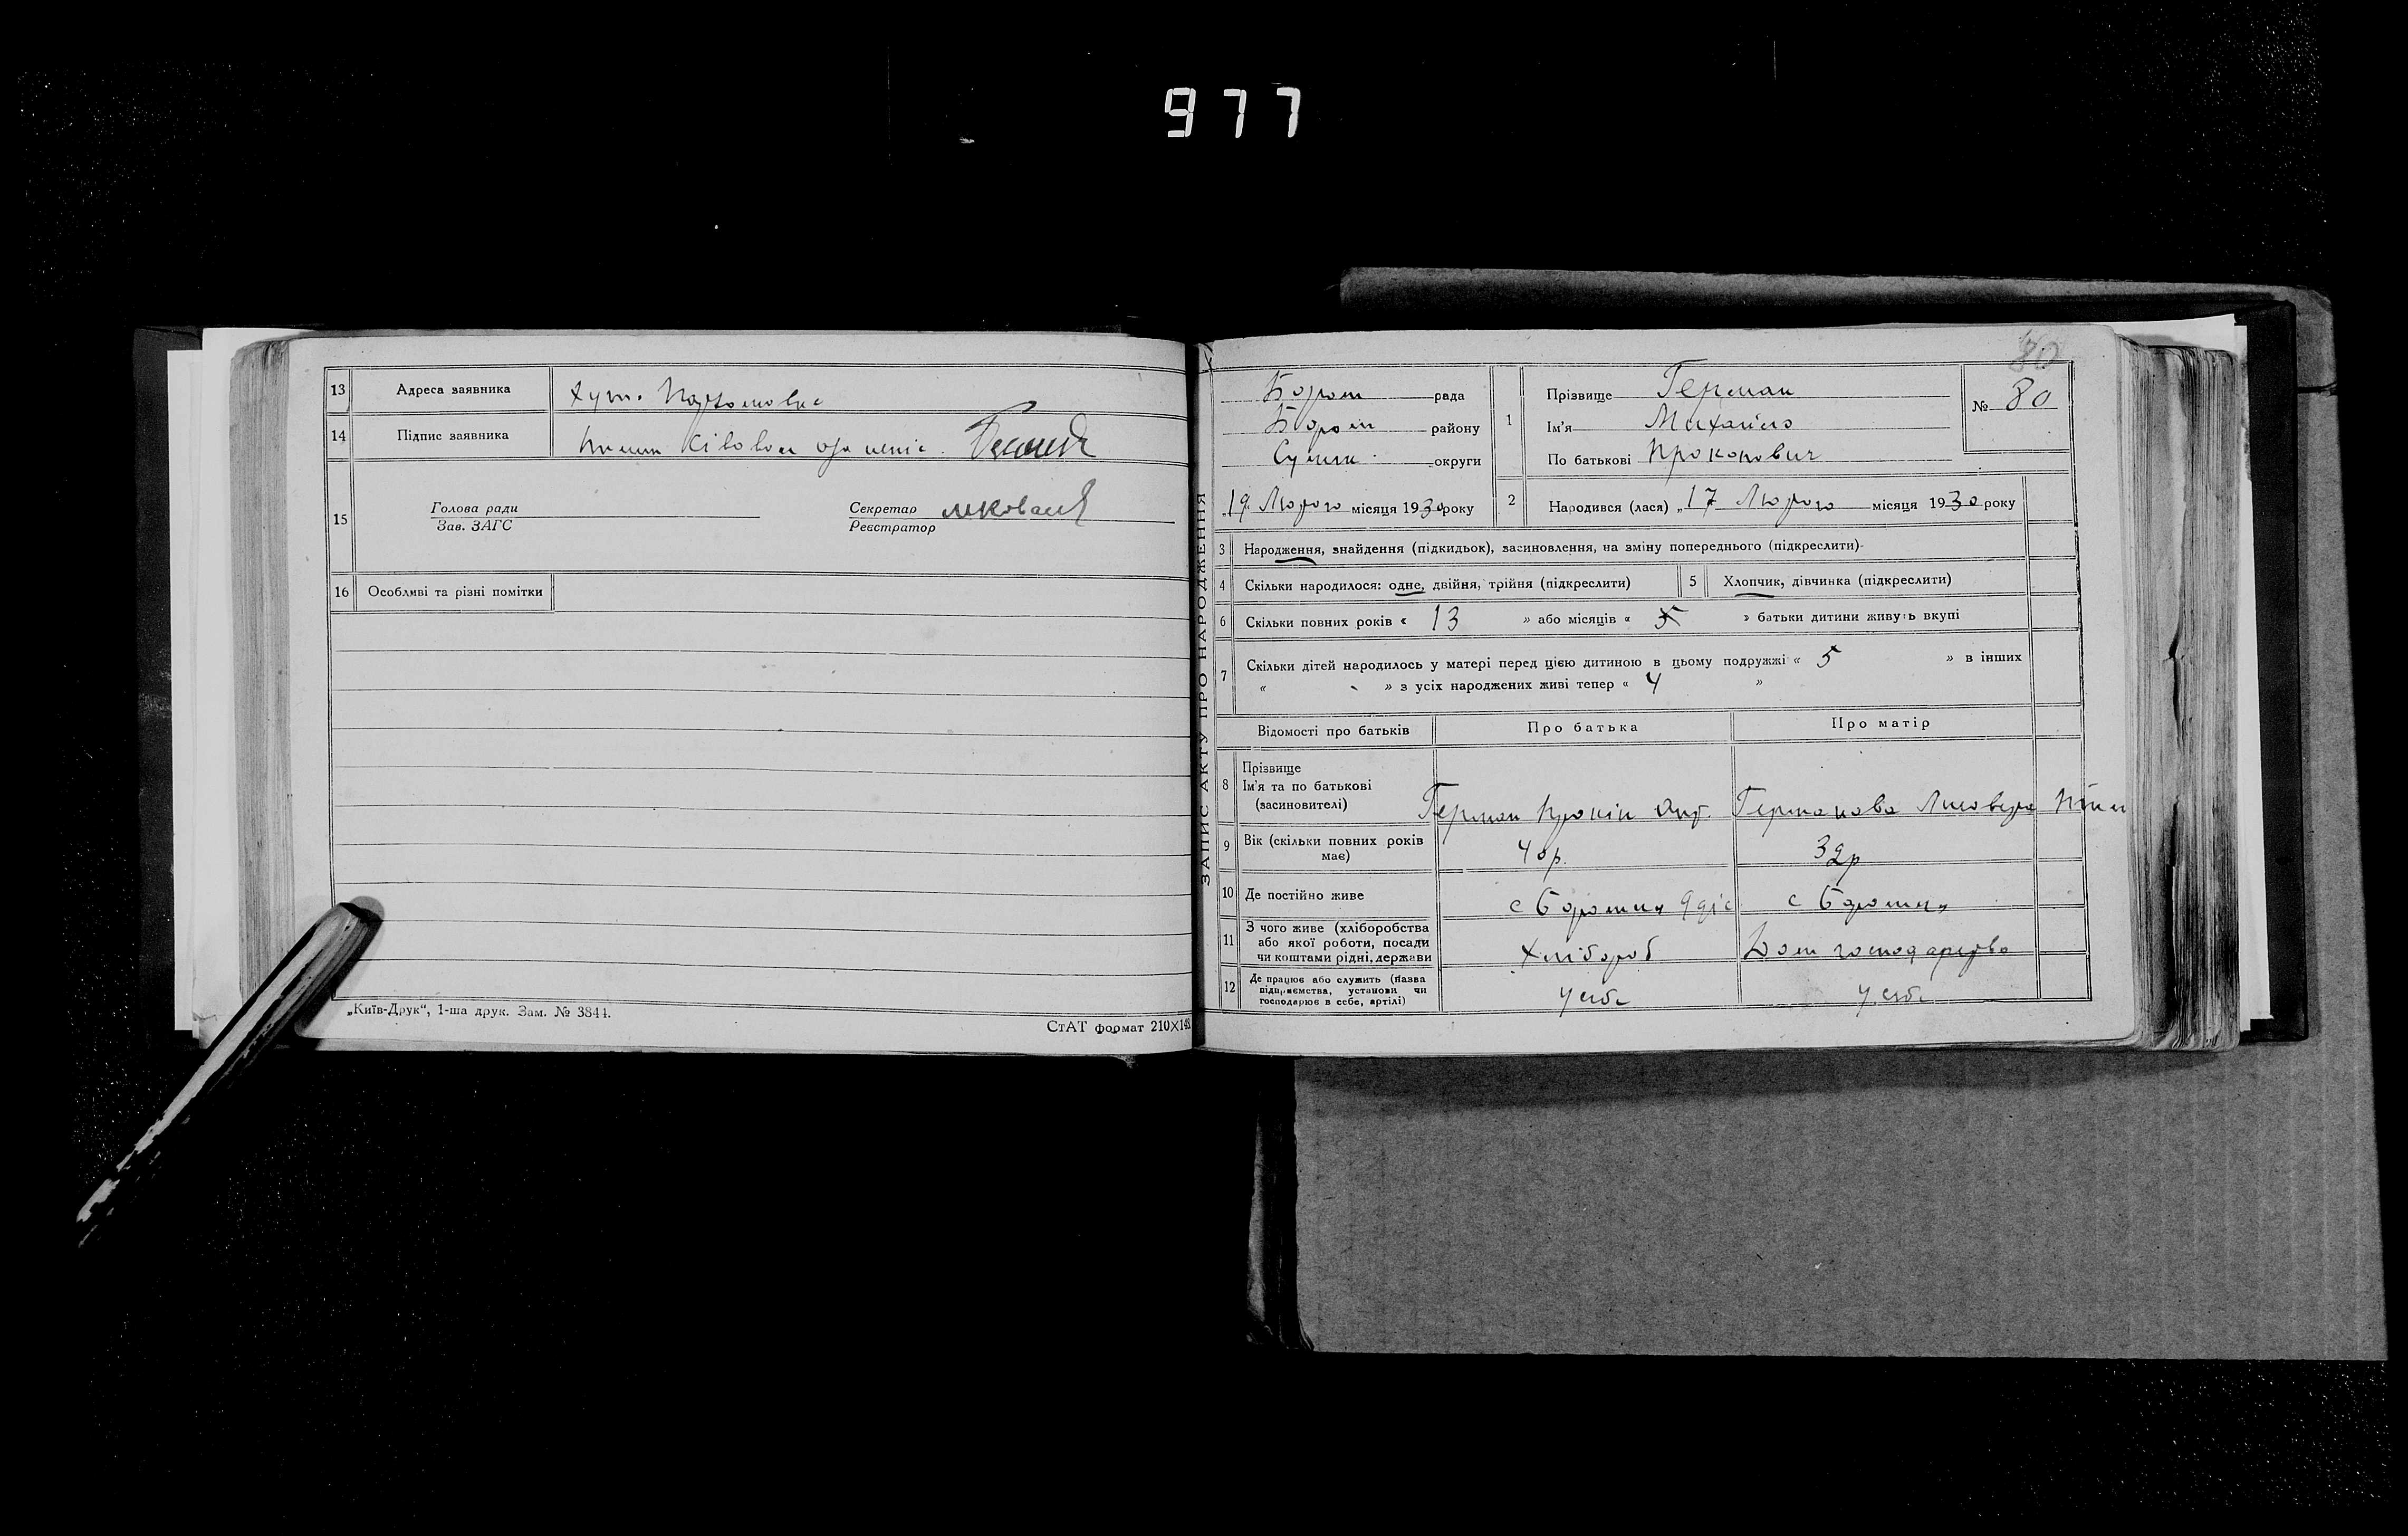 977
13 Адреса заявника хут.
14 Підпис заявника
15 Голова ради
Зав. ЗАГС
Секретар
Реєстратор
16 Особливі та різні помітки
„Київ-Друк“, 1-ша друк. Зам. № 3844.
СтАТ формат 210×148
80
ЗАПИС АКТУ ПРО НАРОДЖЕННЯ
Бором рада
Бором району
Сумськ округи
19 Лютого місяця 1930 року
1 Прізвище Герман
Ім'я Михайло
По батькові Прокопович
№ 80
2 Народився (лася) „17 Лютого місяця 1930 року
3 Народження, знайдення (підкидьок), засиновлення, на зміну попереднього (підкреслити)
4 Скільки народилося: одне, двійня, трійня (підкреслити)
5 Хлопчик, дівчинка (підкреслити)
6 Скільки повних років « 13 » або місяців « » батьки дитини живуть вкупі
7 Скільки дітей народилось у матері перед цією дитиною в цьому подружжі « 5 » в інших
« » з усіх народжених живі тепер « 4 »
Відомості про батьків
Про батька
Про матір
8 Прізвище
Ім'я та по батькові
(засиновителі)
Герман Прокіп
Германова
9 Вік (скільки повних років
має)
40р.
32р
10 Де постійно живе
с Боромля
с Боромля
11 З чого живе (хліборобства
або якої роботи, посади
чи коштами рідні, держави
Хлібороб
Дом господарство
12 Де працює або служить (Назва
підприємства, установи чи
господарює в себе, артілі)
У себе
У себе